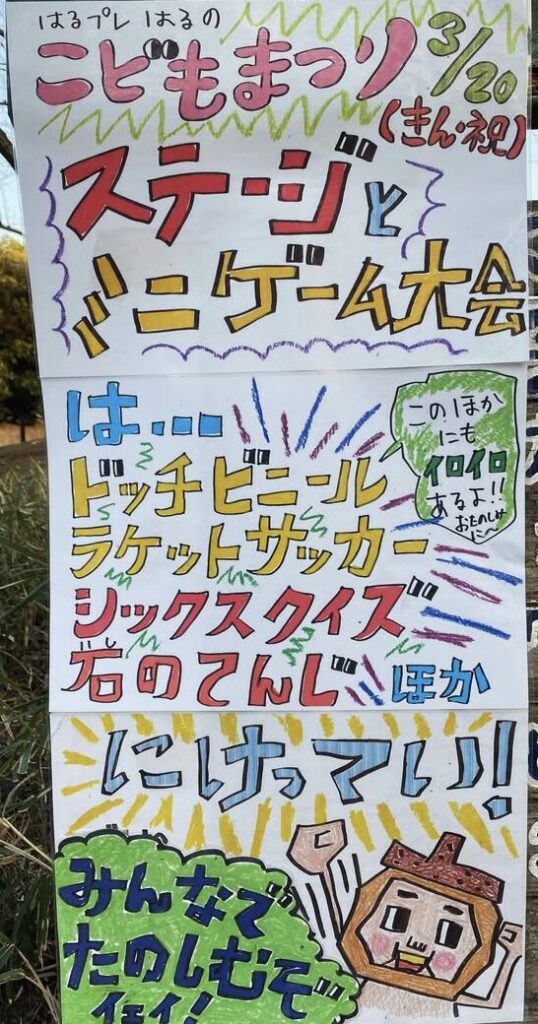 はるプレ はるの
こどもまつり
3/20
(きん・祝)
ステージと
ミニゲーム大会
は…
ドッチビニール
ラケットサッカー
シックスクイズ
いし
石のてんじ ほか
このほか
にも
イロイロ
あるよ!!
おたのしみ
に〜
にけってい!
みんなで
たのしむぞ
イェイ!